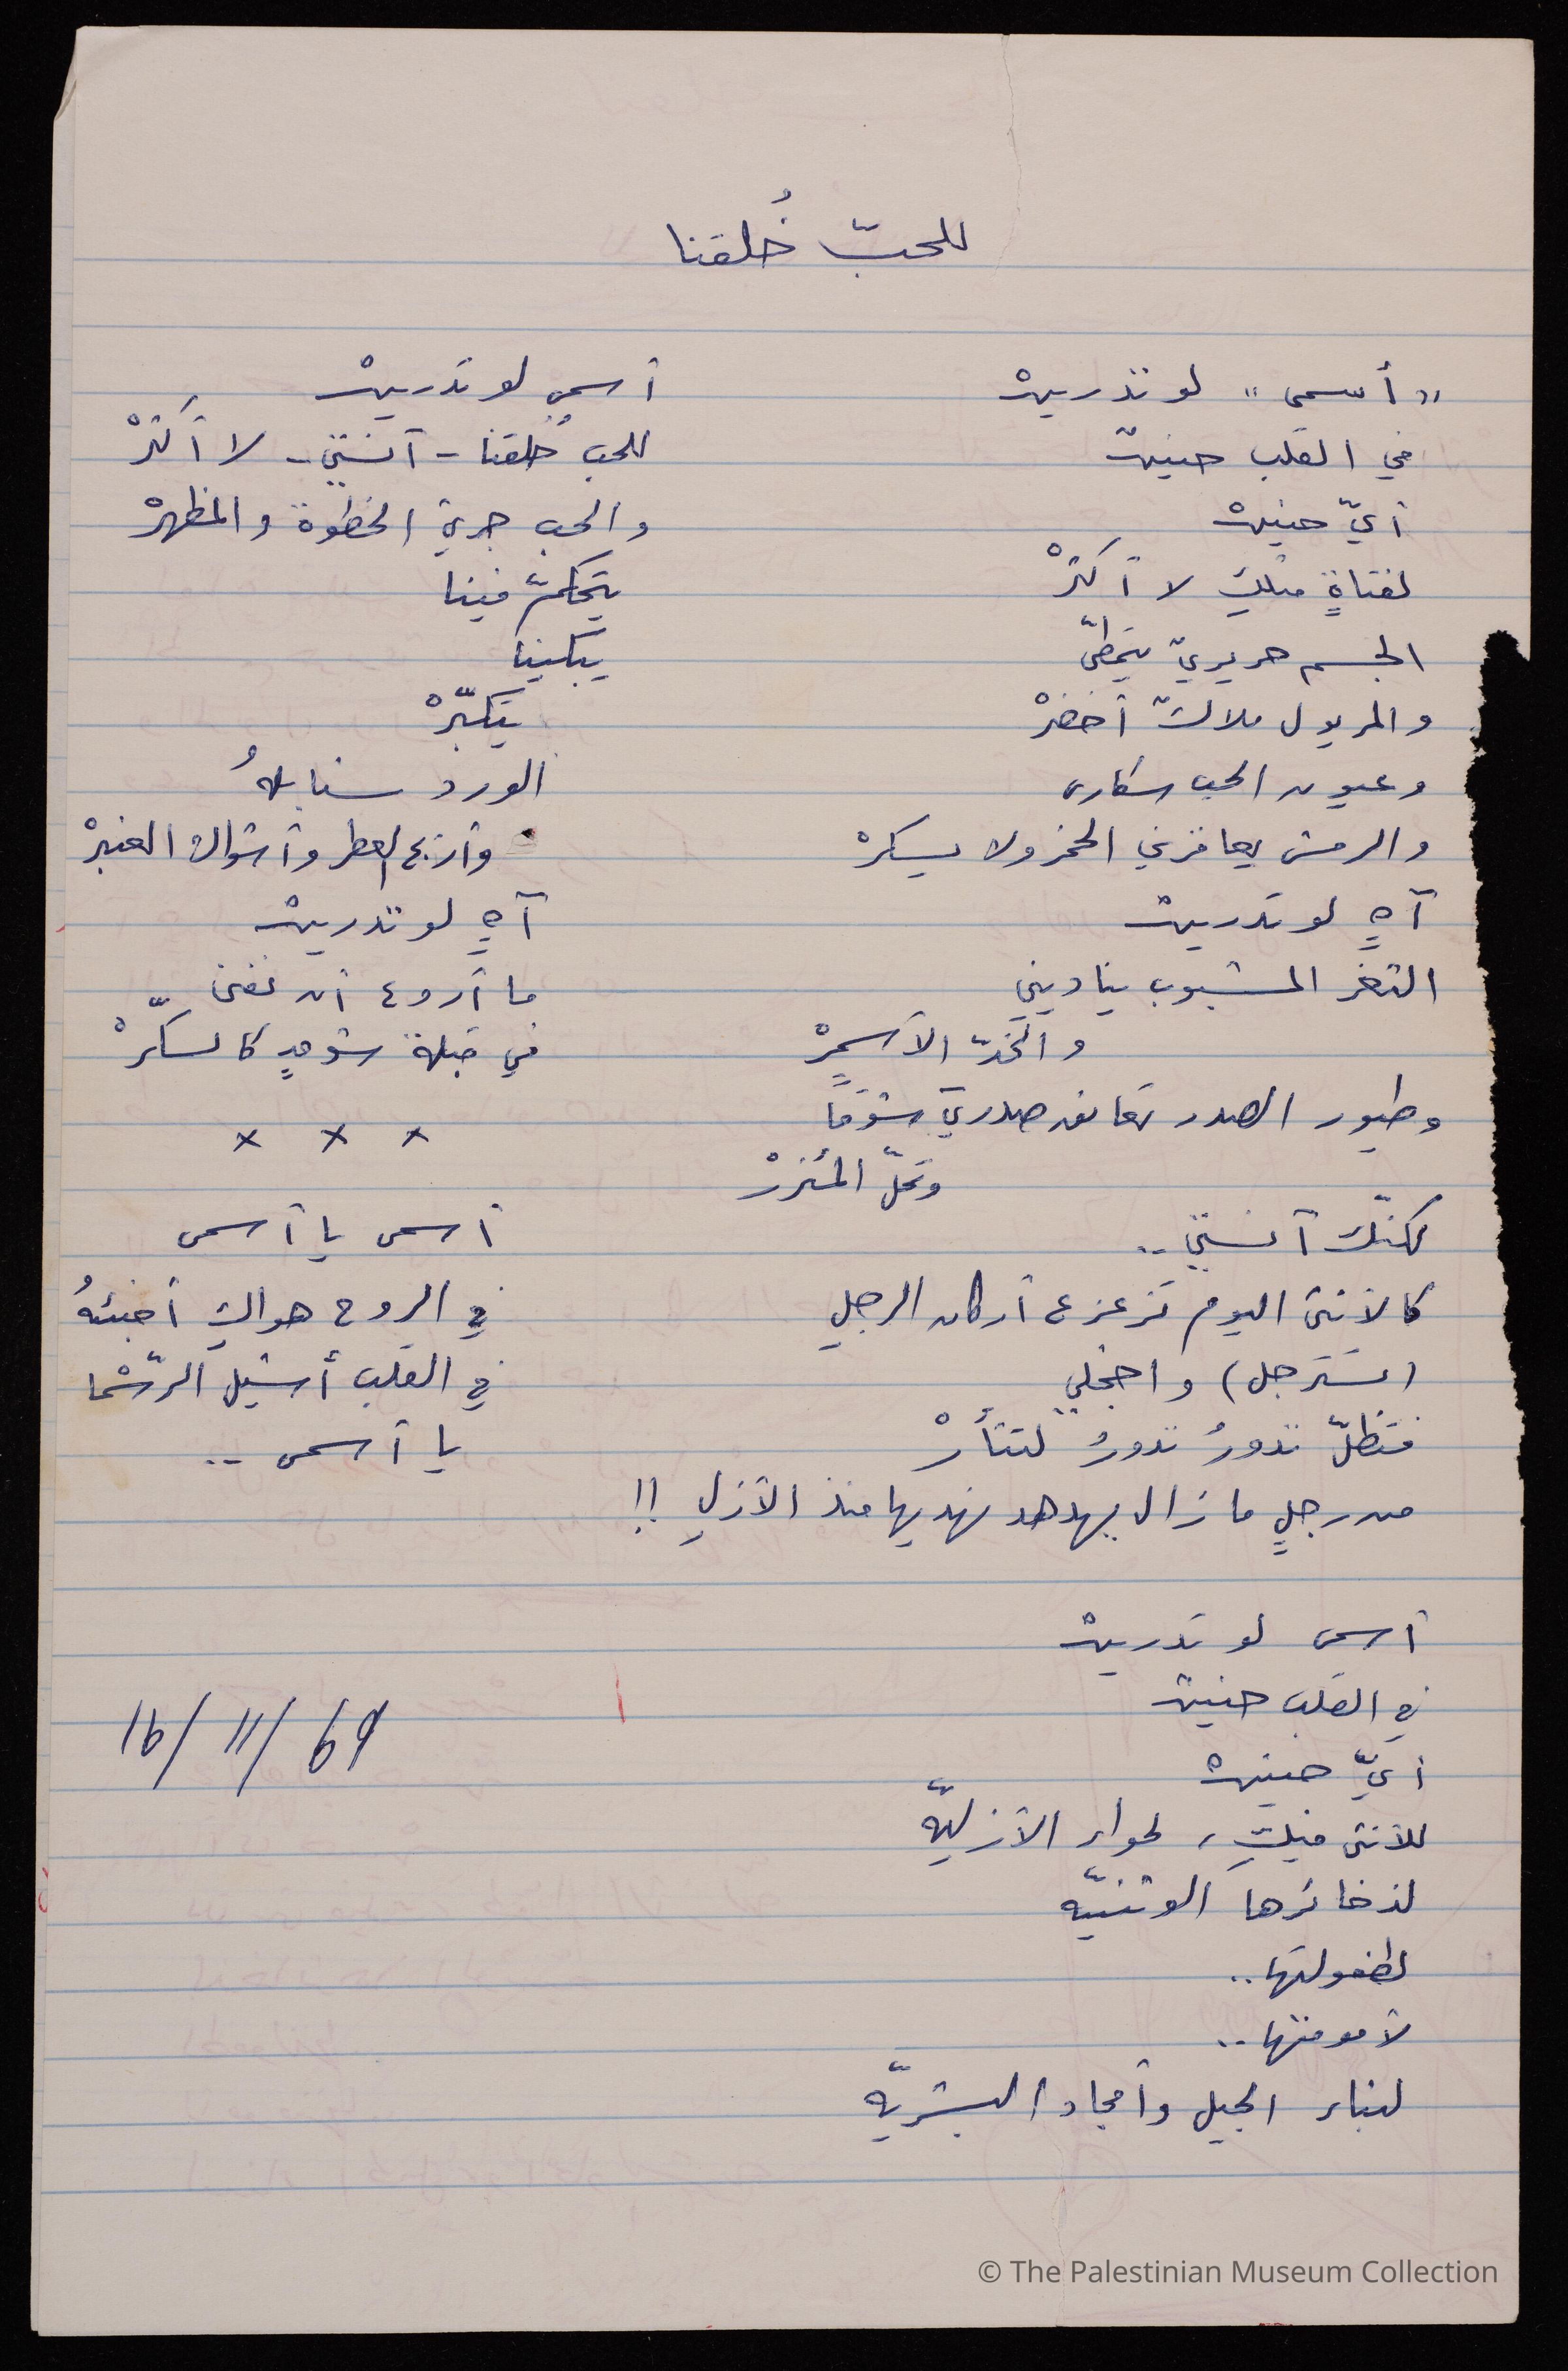 للحبّ خُلقنا
"أسمى" لو تدرينْ
في القلب حنينْ
أيّ حنينْ
لفتاةٍ مثلكِ لا أكثرْ
الجسم حريريّ يتمطّى
والمريول ملاكٌ أخضرْ
وعيون الحب سكارى
والرمش يعاقرني الخمر ولا يسكرْ
آهٍ لو تدرينْ
الثغر المشبوب يناديني
والخدّ الأسمرْ
وطيور الصدر تعانق صدري شوقًا
وتحلّ المئزرْ
لكنّك آنستي..
كالأنثى اليوم تزعزع أركان الرجلِ
(تسترجل) واخجلي
فتظلّ تدورُ تدورُ لتثأرْ
من رجلٍ ما زال يهدهد نهديها منذ الأزلِ !!
أسمى لو تدرينْ
في القلب حنينْ
أيّ حنينْ
للأنثى فيكِ، لحواء الأزليّه
لذخائرها الوثنيّه
لطفولتها..
لأمومتها..
لبناء الجيل وأمجاد البشريّه
أسمى لو تدرينْ
للحب خُلقنا - آنستي - لا أكثرْ
والحب جريئ الخطوة والمظهرْ
يتحكّم فينا
يبكينا
يتكبّرْ
الورد سنابلهُ
وأريج العطر وأشواك العنبرْ
آهٍ لو تدرينْ
ما أروع أن نفنى
في قبلة شوقٍ كالسكّرْ
× × ×
أسمى يا أسمى
في الروح هواكِ أخبئهُ
في القلب أشيل الرّسْما
يا أسمى ..
16/11/69
© The Palestinian Museum Collection